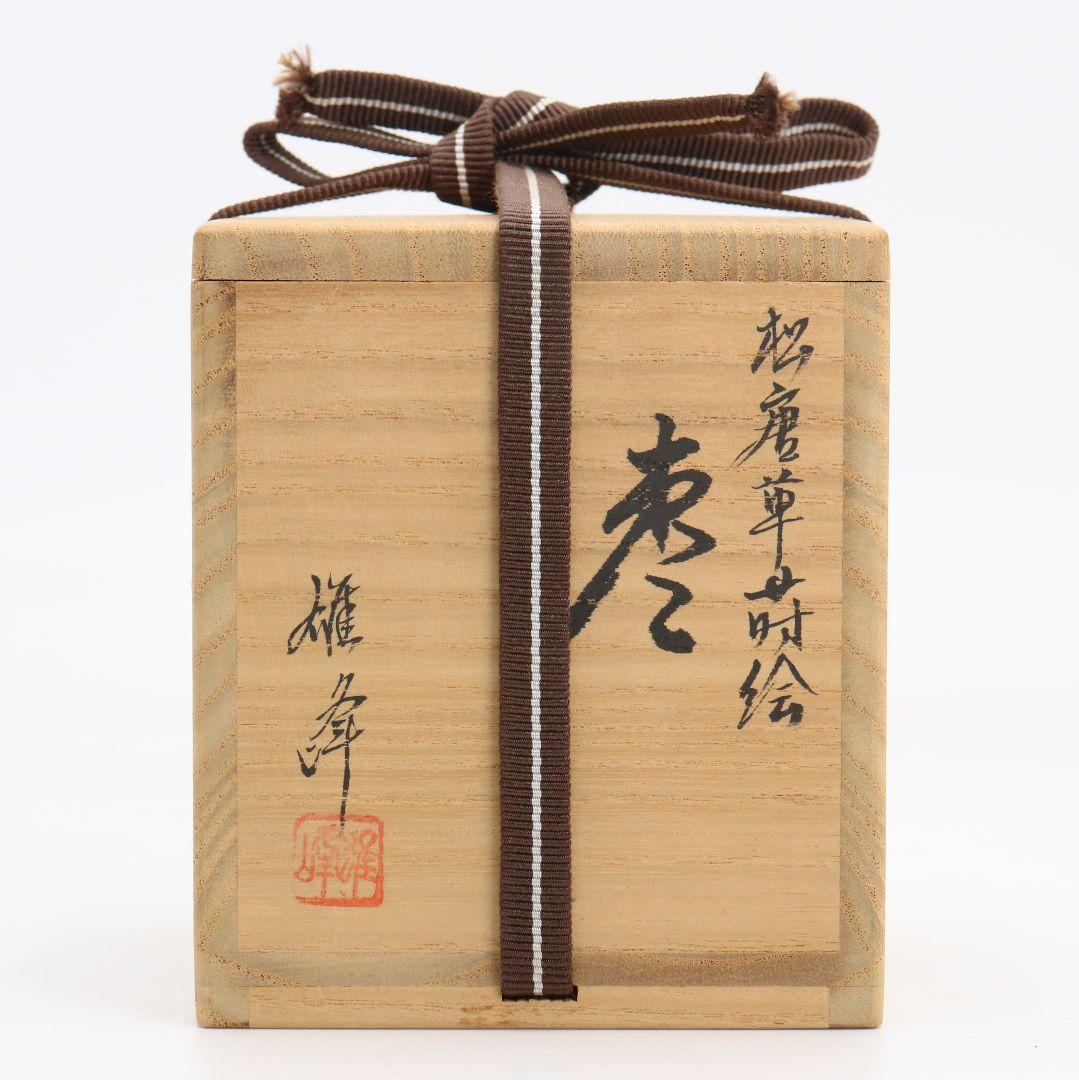 松唐草蒔絵
棗
雄峰
雄峰